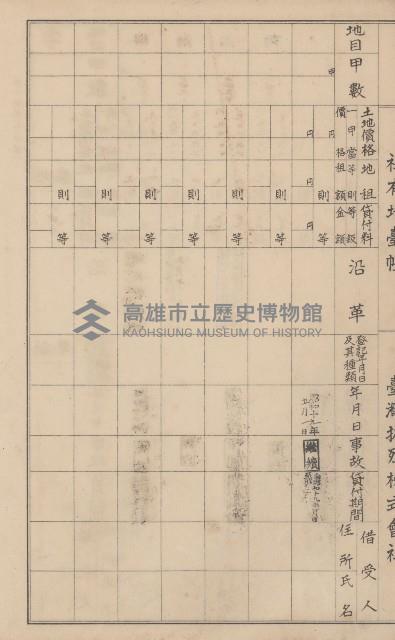 社有地臺帳
臺灣拓殖株式會社
地目甲數
甲
土地價格
一甲當
價格
円
円
地租
等則
租額
円
貸付料
等級
金額
則
等
則
等
則
等
則
等
則
等
則
等
則
等
沿革
登記年月日
及其種類
年月日
事故
貸付期間
借受人
住所氏名
昭和十九年
五月一日
繼續
高雄市立歷史博物館
KAOHSIUNG MUSEUM OF HISTORY